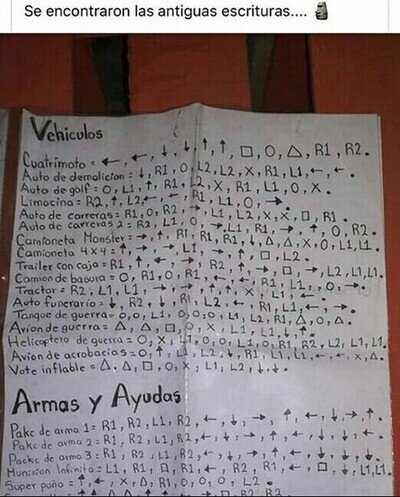 Se encontraron las antiguas escrituras.... 🗿
Vehiculos
Cuatrimoto = ←, ←, ↓, ↓, ↑, ↑, □, O, △, R1, R2.
Auto de demolicion = ↓, R1, O, L2, L2, X, R1, L1, ←, ←.
Auto de golf = O, L1, ↑, R1, L2, X, R1, L1, O, X.
Limocina = R2, ↑, L2, ←, ←, R1, L1, O, →.
Auto de carreras = R1, O, R2, →, L1, L2, X, X, □, R1.
Auto de carreras 2 = R2, L1, O, →, L1, R1, →, ↑, O, R2.
Camioneta Monster = →, ↑, R1, R1, R1, ↓, △, △, X, O, L1, L1.
Camioneta 4x4 = ↑, →, →, L1, →, ↑, □, L2.
Trailer con caja = R1, ↑, ←, →, R2, ↑, →, □, →, L2, L1, L1.
Camion de basura = O, R1, O, R1, ←, ←, R1, L1, O, →.
Tractor = R2, L1, L1, →, →, ↑, ↑, X, L1, ←.
Auto funerario = ↓, R2, ↓, R1, L2, ←, R1, L1, ←, →.
Tanque de guerra = O, O, L1, O, O, O, L1, L2, R1, △, O, △.
Avion de guerra = △, △, □, O, X, L1, L1, ↓, ↑.
Helicoptero de guerra = O, X, L1, O, O, L1, O, R1, R2, L2, L1, L1.
Avion de acrobacias = O, ↑, L1, L2, ↓, R1, L1, L1, ←, ←, X, △.
Vote inflable = △, △, □, O, X, L1, L2, ↓, ↓.
Armas y Ayudas
Pake de arma 1 = R1, R2, L1, R2, ←, ↓, →, ↑, ←, ↓, →, ↑.
Pake de arma 2 = R1, R2, L1, R2, ←, ↓, →, ↑, ←, ↓, ↓, ←.
Packe de arma 3 = R1, R2, L1, R1, ←, ↓, →, ↑, ←, ↓, ↓, ↓.
Municion Infinita = L1, R1, □, R1, ←, R2, R1, ←, □, ↓, L1, L1.
Super puño = ↑, ←, X, △, R1, O, O, O, L2.